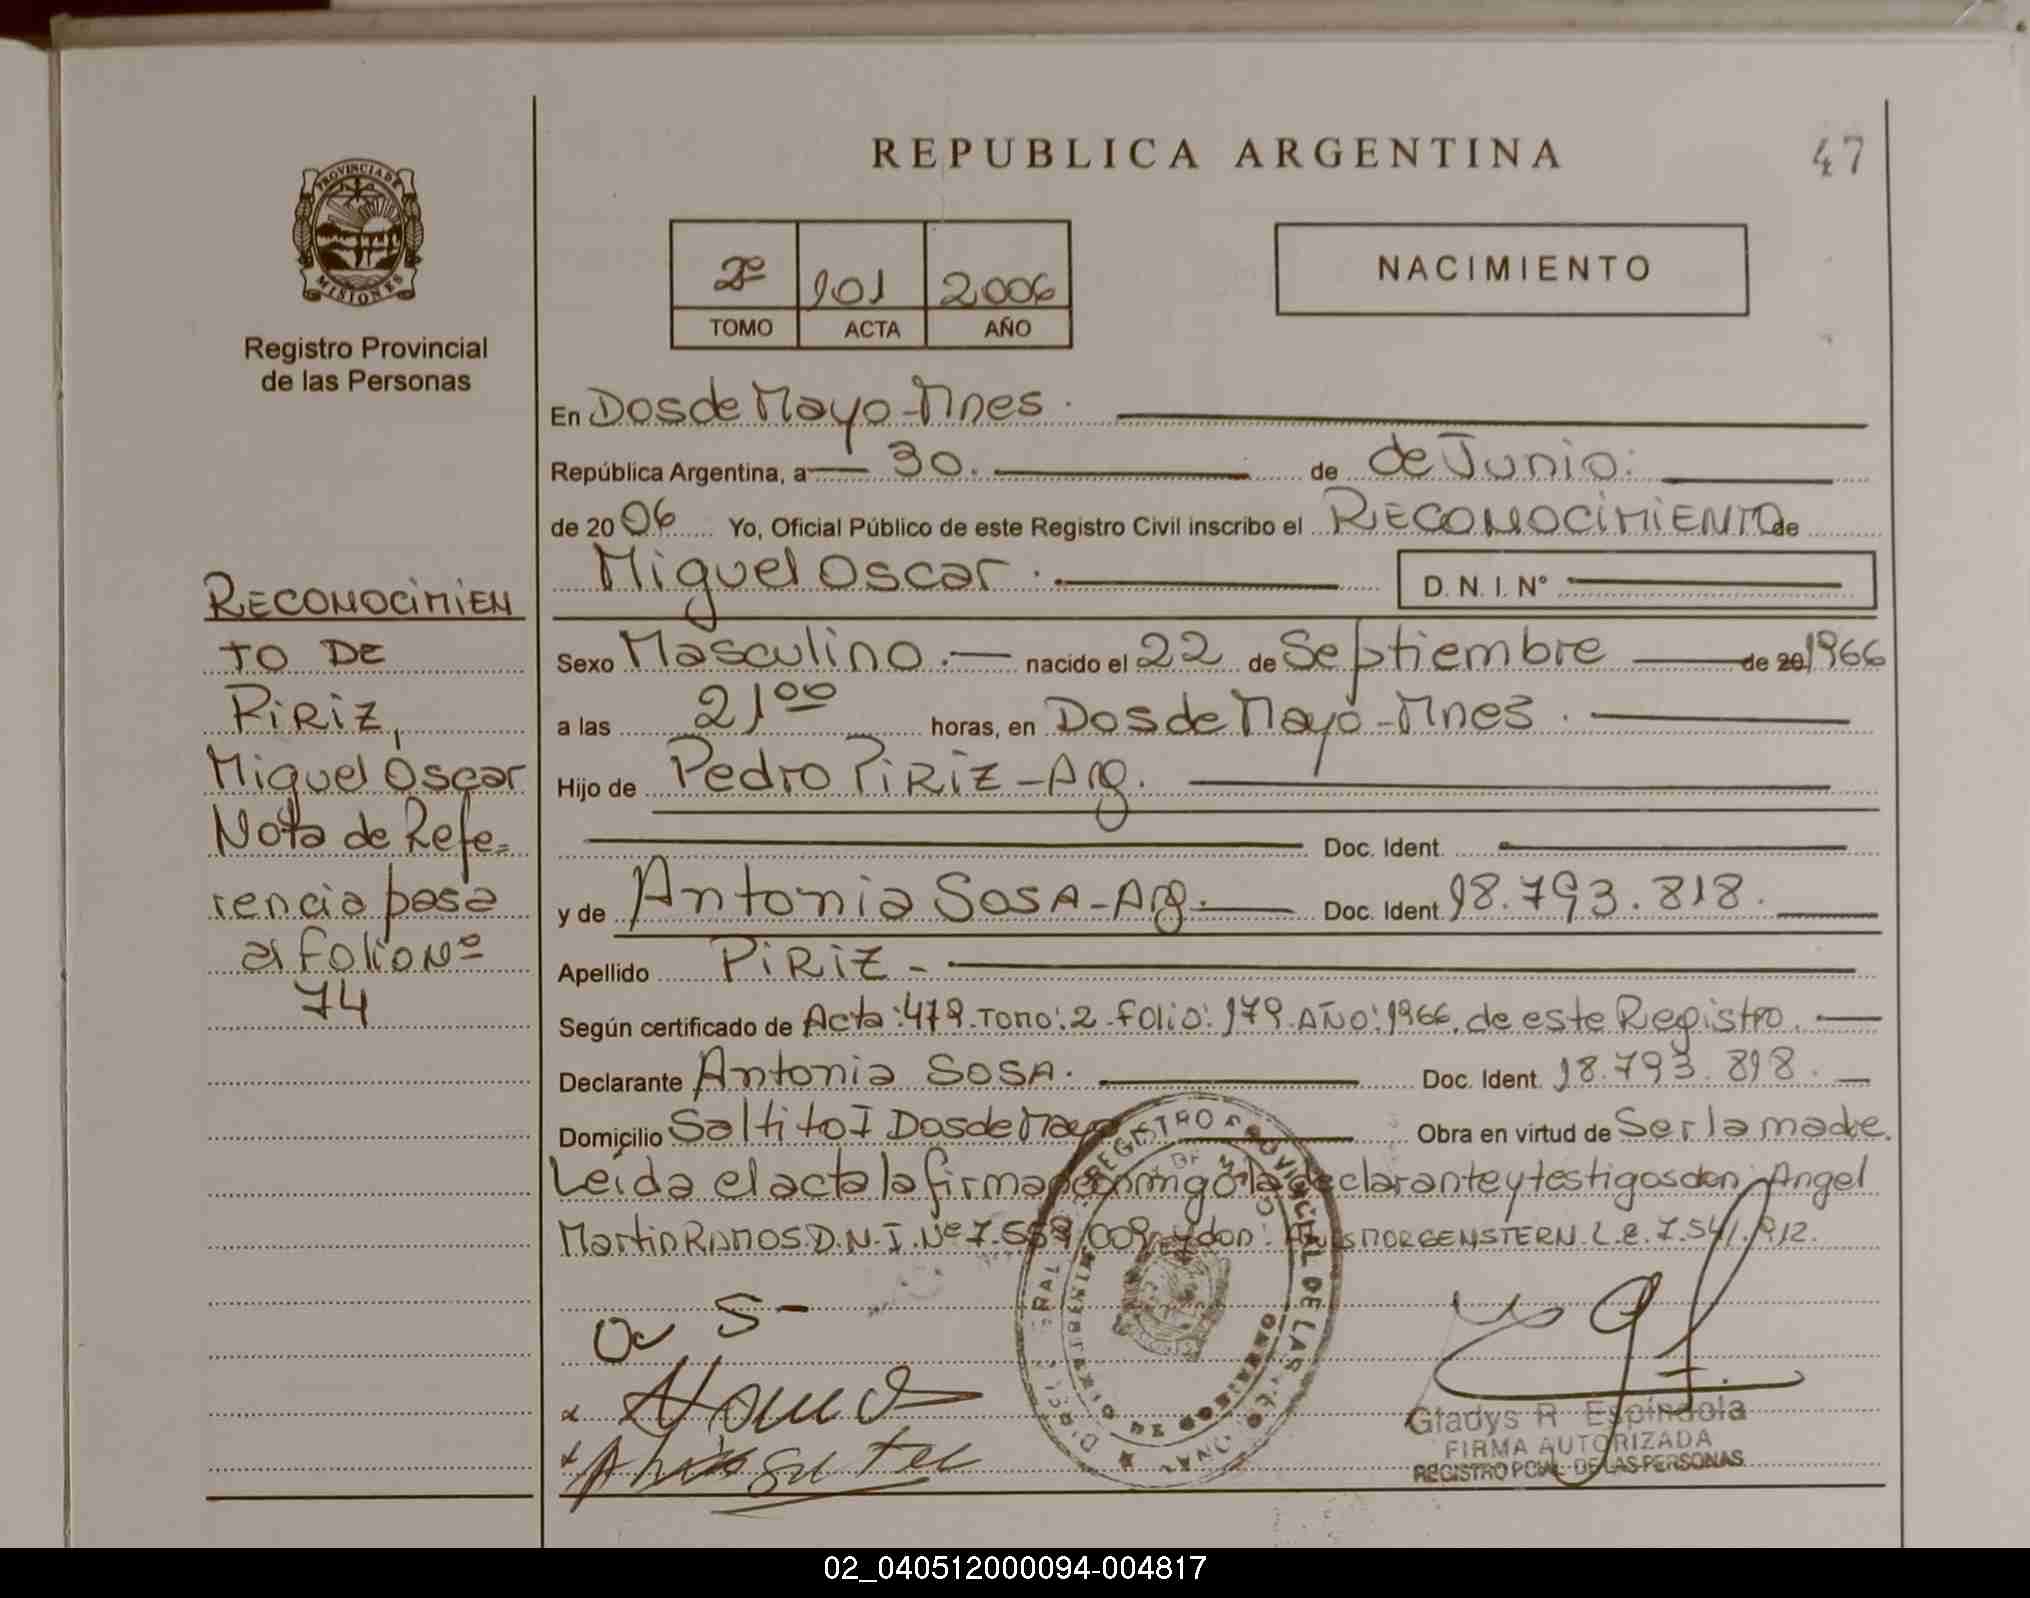 REPUBLICA ARGENTINA
47
PROVINCIA DE
MISIONES
Registro Provincial
de las Personas
2º 101 2006
TOMO ACTA AÑO
NACIMIENTO
En Dos de Mayo - Mnes.
República Argentina, a 30. de de Junio.
de 2006 Yo, Oficial Público de este Registro Civil inscribo el RECONOCIMIENTO de
Miguel Oscar. D. N. I. Nº
Sexo Masculino. nacido el 22 de Septiembre de 20 1966
a las 21 00 horas, en Dos de Mayo - Mnes.
Hijo de Pedro PIRIZ - Arg.
Doc. Ident.
y de Antonia SOSA - Arg. Doc. Ident. 18.793.818.
Apellido PIRIZ -
Según certificado de Acta: 479. Tomo: 2. Folio: 179. AÑO: 1966. de este Registro.
Declarante Antonia SOSA. Doc. Ident. 18.793.818.
Domicilio Saltito I Dos de Mayo Obra en virtud de Ser la madre.
Leída el acta la firma conmigo la declarante y testigos don: Angel
Martin RAMOS D.N.I. Nº 7.559.009 y don: MORGENSTERN. L.E. 7.541.912.
RECONOCIMIEN
TO DE
PIRIZ,
Miguel Oscar
Nota de Refe=
rencia pasa
al Folio Nº
74
REGISTRO PROVINCIAL DE LAS
Gladys R Espindola
FIRMA AUTORIZADA
REGISTRO PCIAL DE LAS PERSONAS
02_040512000094-004817